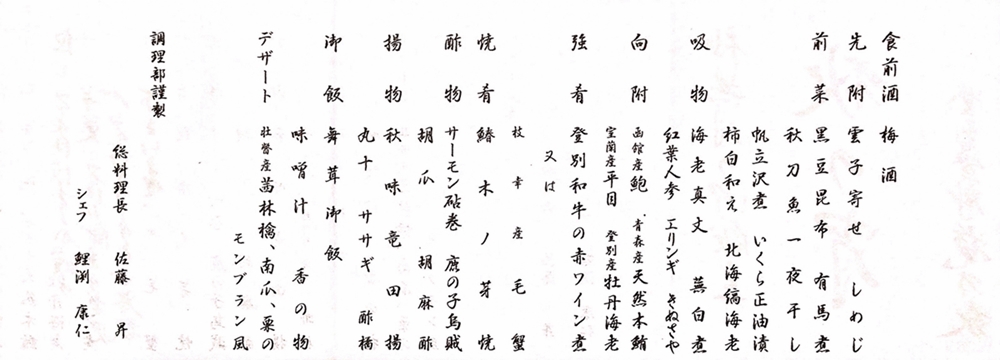 食前酒 梅酒
先附 雲子寄せ しめじ
前菜 黒豆昆布 有馬煮
秋刀魚一夜干し
帆立沢煮 いくら正油漬
柿白和え 北海縞海老
吸物 海老真丈 蕪白煮
紅葉人参 エリンギ きぬさや
向附 函館産鮑 青森産天然本鮪
室蘭産平目 登別産牡丹海老
強肴 登別和牛の赤ワイン煮
又は
枝幸産毛蟹
焼肴 鰆木ノ芽焼
酢物 サーモン砧巻 鹿の子烏賊
胡瓜 胡麻酢
揚物 秋味竜田揚
丸十 ササギ 酢橘
御飯 舞茸御飯
味噌汁 香の物
デザート 壮瞥産苗林檎、南瓜、栗の
モンブラン風
調理部謹製
総料理長 佐藤 昇
シェフ 鯉渕 康仁